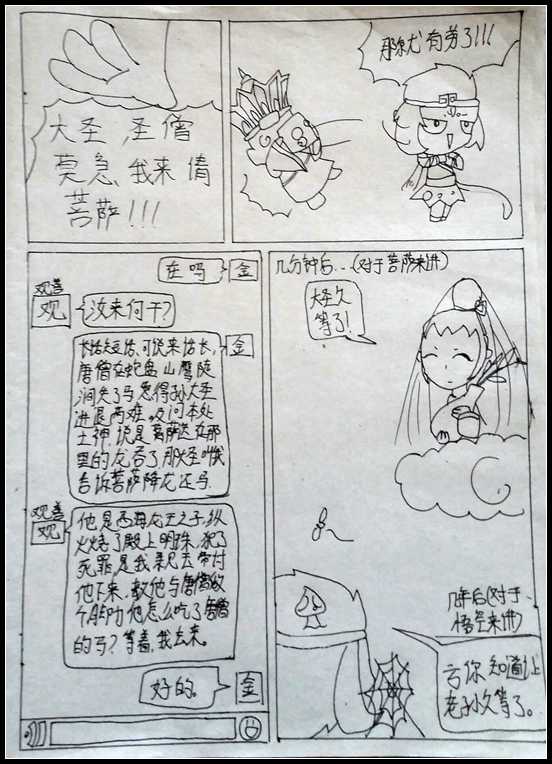 大圣,圣僧
莫急,我来请
菩萨!!!
那就有劳了!!!
在吗
金
观善
观
汝来何干?
金
长话短话,可说来话长,
唐僧在蛇盘山鹰陡
涧失了马,急得孙大圣
进退两难,及问本处
土神,说是菩萨送在那
里的龙吞了,那大圣叫我
告诉菩萨降龙还马.
观善
观
他是西海龙王之子,纵
火烧了殿上明珠,犯了
死罪,是我亲见去带讨
他下来,教他与唐僧做
个脚力,他怎么吃了唐僧
的马?等着,我去来。
好的。
金
几分钟后...(对于菩萨来讲)
大圣久
等了!
几年后(对于
悟空来讲)
亏你知道让
老孙久等了。